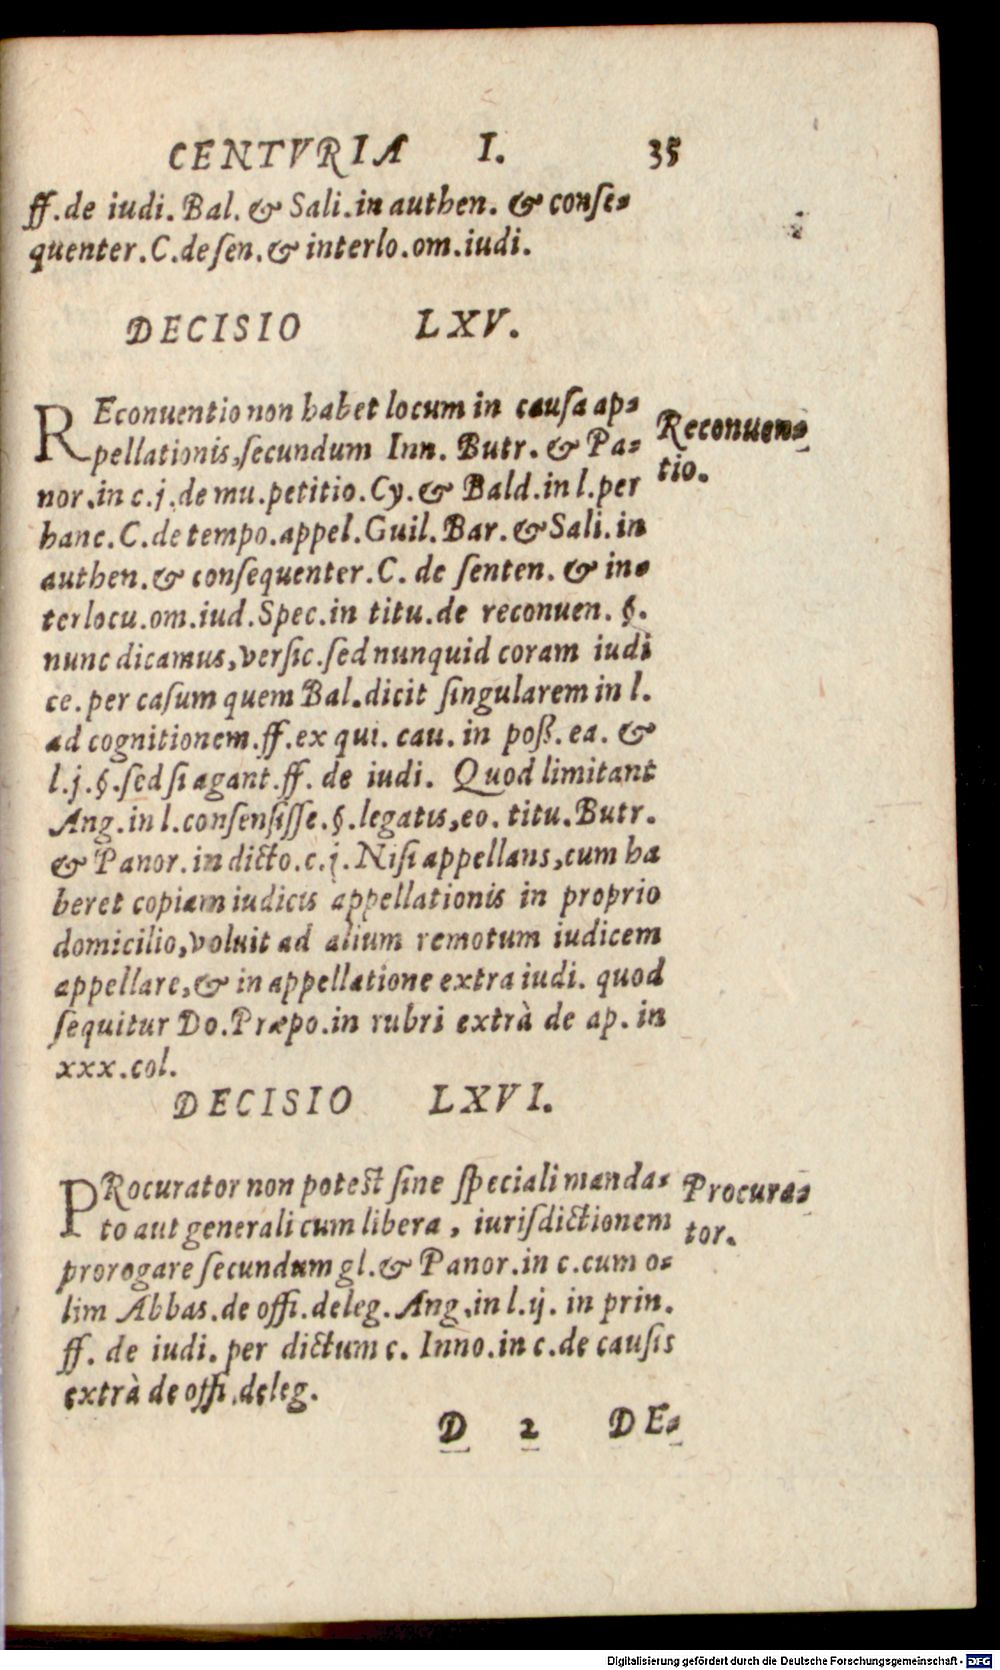 CENTVRIA I. 35
ff.de iudi. Bal. & Sali.in authen. & conse-
quenter.C.de sen.& interlo.om.iudi.
DECISIO LXV.
REconuentio non habet locum in causa ap-
pellationis,secundum Inn. Butr. & Pa-
nor.in c.j.de mu.petitio.Cy.& Bald.in l.per
hanc.C.de tempo.appel.Guil.Bar.& Sali.in
authen.& consequenter.C. de senten. & in-
terlocu.om.iud.Spec.in titu.de reconuen. §.
nunc dicamus,versic.sed nunquid coram iudi
ce.per casum quem Bal.dicit singularem in l.
ad cognitionem.ff.ex qui. cau. in poß. ea. &
l.j.§.sed si agant.ff. de iudi. Quod limitant
Ang.in l.consensisse.§.legatis,eo. titu.Butr.
& Panor.in dicto.c.j.Nisi appellans,cum ha
beret copiam iudicis appellationis in proprio
domicilio,voluit ad alium remotum iudicem
appellare,& in appellatione extra iudi. quod
sequitur Do.Præpo.in rubri extrà de ap. in
xxx.col.
Reconuen-
tio.
DECISIO LXVI.
PRocurator non potest sine speciali manda-
to aut generali cum libera , iurisdictionem
prorogare secundum gl.& Panor.in c.cum o-
lim Abbas.de offi.deleg.Ang.in l.ij. in prin.
ff. de iudi. per dictum c. Inno.in c.de causis
extrà de offi.deleg.
Procura-
tor.
D 2 DE-
Digitalisierung gefördert durch die Deutsche Forschungsgemeinschaft - DFG